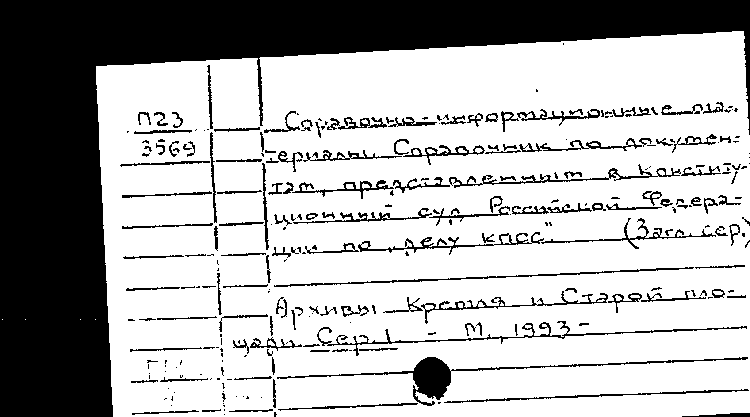 П23
3569
Справочно-информационные ма-
териалы. Справочник по докумен-
там, представленным в Конститу-
ционный суд Российской Федера-
ции по „делу КПСС". (Загл. сер.)
Архивы Кремля и Старой пло-
щади. Сер. 1. - М., 1993 -